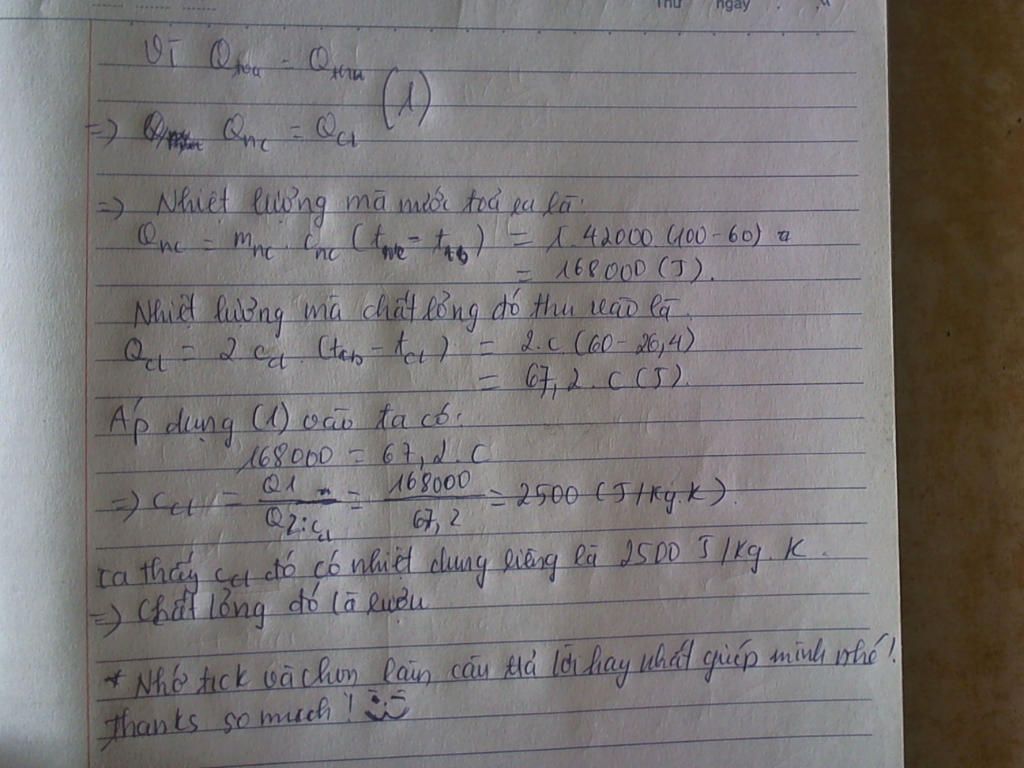 Thứ ngày
Vì Qtỏa = Qthu (1)
=> Qnc = Qcl
=> Nhiệt lượng mà nước toả ra là:
Qnc = mnc . cnc (tnc - ttb) = 1.42000 (100-60)
= 168000 (J).
Nhiệt lượng mà chất lỏng đó thu vào là
Qcl = 2 ccl . (tcb - tcl) = 2.c.(60-26,4)
= 67,2.c (J).
Áp dụng (1) vào ta có:
168000 = 67,2.c
=> ccl = Q1 / Q2:ccl = 168000 / 67,2 = 2500 (J/kg.K).
ta thấy ccl đó có nhiệt dung riêng là 2500 J/kg.K.
=> Chất lỏng đó là rượu
* Nhớ tick và chọn làm câu trả lời hay nhất giúp mình nhé!
thanks so much!